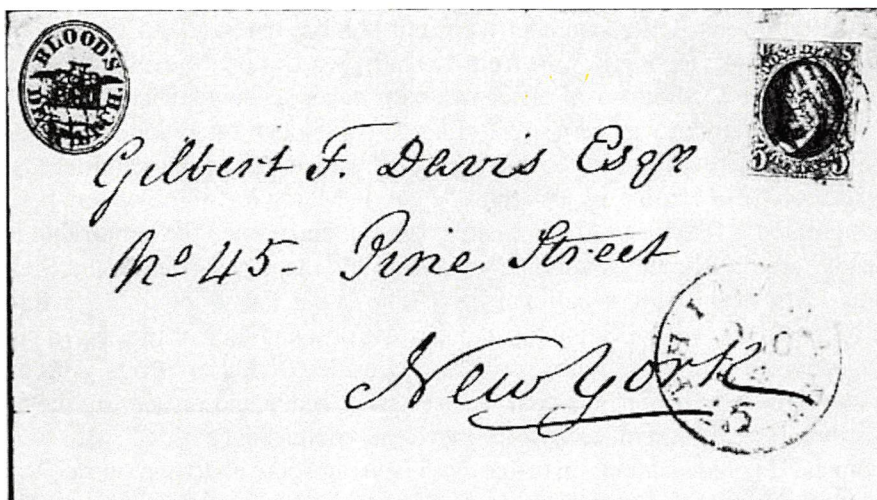 BLOOD'S
DESPATCH.
POST OFFICE
5 5
Gilbert F. Davis Esqr
No 45- Pine Street
New York
5